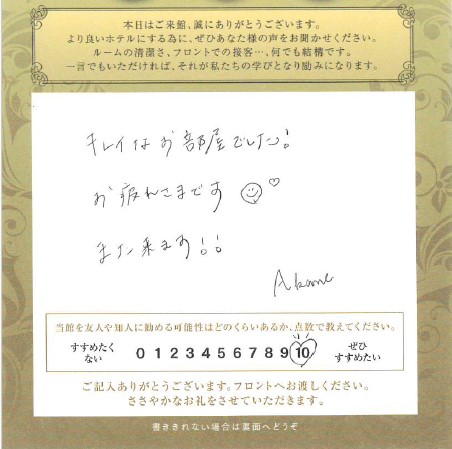 本日はご来館、誠にありがとうございます。
より良いホテルにする為に、ぜひあなた様の声をお聞かせください。
ルームの清潔さ、フロントでの接客…、何でも結構です。
一言でもいただければ、それが私たちの学びとなり励みになります。
キレイなお部屋でした!
お疲れさまです
また来ます!!
Akane
当館を友人や知人に勧める可能性はどのくらいあるか、点数で教えてください。
すすめたくない 0 1 2 3 4 5 6 7 8 9 10 ぜひすすめたい
ご記入ありがとうございます。フロントへお渡しください。
ささやかなお礼をさせていただきます。
書ききれない場合は裏面へどうぞ